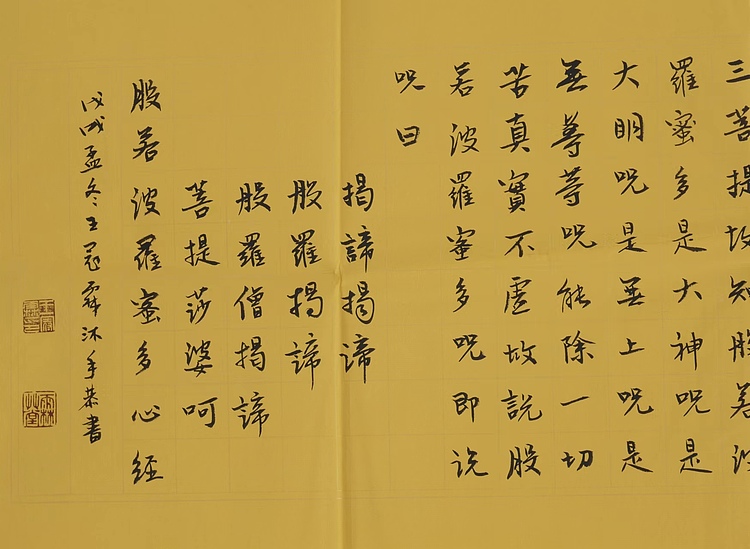 三菩提故知般若波
羅蜜多是大神呪是
大明呪是無上呪是
無等等呪能除一切
苦真實不虛故説般
若波羅蜜多呪即说
呪曰
揭諦揭諦
般羅揭諦
般羅僧揭諦
菩提莎婆呵
般若波羅蜜多心经
戊戌孟冬王冠沐手恭書